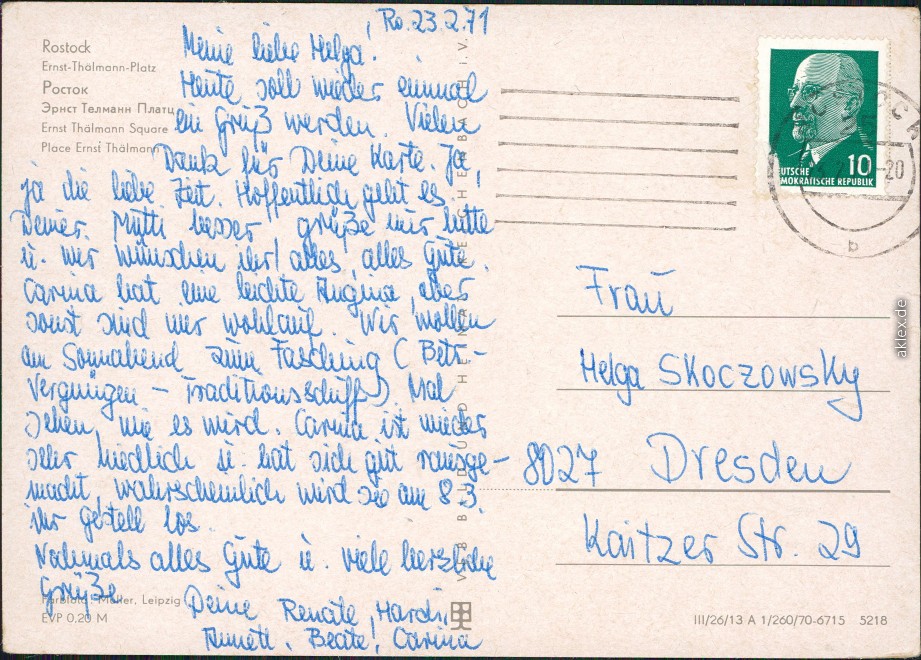 Rostock
Ernst-Thälmann-Platz
Росток
Эрнст Телманн Платц
Ernst Thälmann Square
Place Ernst Thälmann
Ro. 23.2.71
Meine liebe Helga!
Heute soll wieder einmal
ein Gruß werden. Vielen
Dank für Deine Karte. Ja,
ja die liebe Zeit. Hoffentlich geht es
Deiner Mutti besser, grüße mir bitte
u. wir wünschen ihr alles, alles Gute.
Carina hat eine leichte Angina, aber
sonst sind wir wohlauf. Wir wollen
am Sonnabend zum Fasching (Betr.-
Vergnügen - Traditionsschiff). Mal
sehen, wie es wird. Carina ist wieder
sehr niedlich u. hat sich gut rausge-
macht, wahrscheinlich wird sie am 8.3.
ihr Gestell los.
Nochmals alles Gute u. viele herzliche
Grüße
Deine Renate, Hardi,
Annett, Beate, Carina
Müller, Leipzig
EVP 0.20 M
VEB BILD UND HEIMAT REICHENBACH I. V.
DEUTSCHE
DEMOKRATISCHE REPUBLIK
10
-20
b
Frau
Helga Skoczowsky
8027 Dresden
Kaitzer Str. 29
III/26/13 A 1/260/70-6715 5218
aklex.de